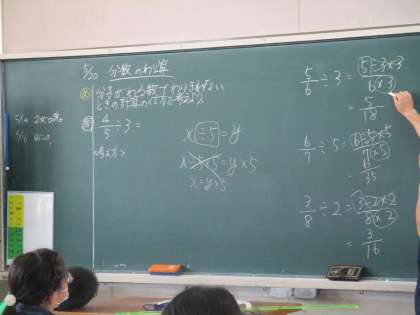 5/20 分数のわり算
分子がわる数でわりきれない
ときの計算の仕方を考えよう。
4/5÷3=
<考え方>
x÷5=y
x÷5×5=y×5
x=y×5
5/6÷3=5÷3×3/6×3
=5/18
6/7÷5=6÷5×5/7×5
=6/35
3/8÷2=3÷2×2/8×2
=3/16